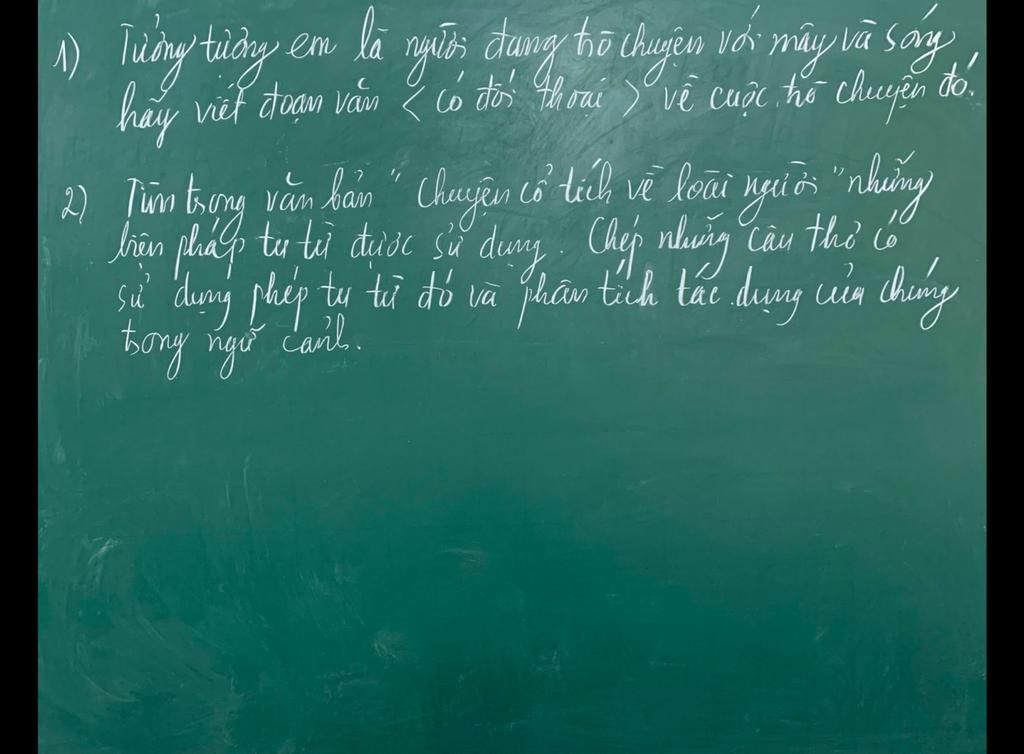 1) Tưởng tượng em là người đang trò chuyện với mây và sóng
hãy viết đoạn văn < có đối thoại > về cuộc trò chuyện đó.
2) Tìm trong văn bản " Chuyện cổ tích về loài người " những
biện pháp tu từ được sử dụng. Chép những câu thơ có
sử dụng phép tu từ đó và phân tích tác dụng của chúng
trong ngữ cảnh.